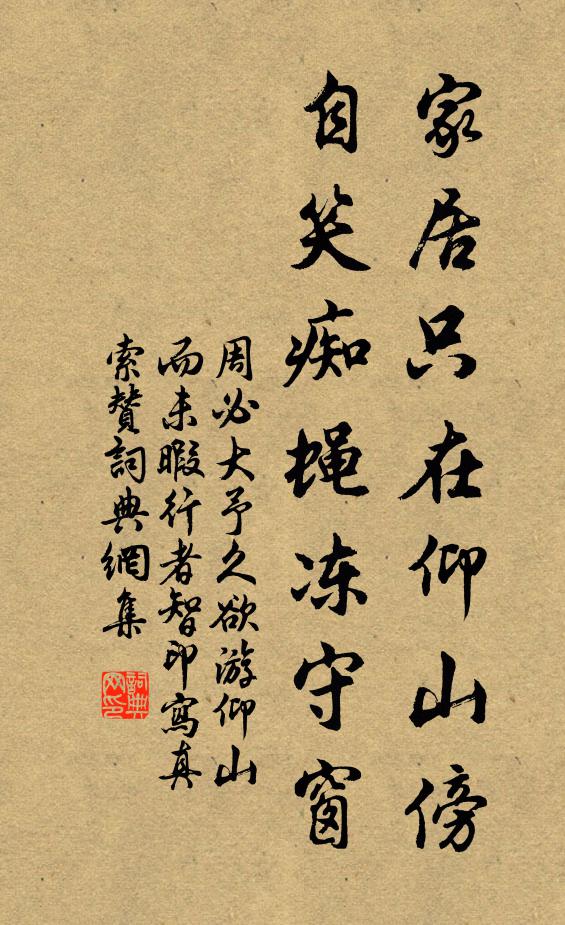 家居只在仰山傍
自笑痴蝇冻守窗
周必大予久欲游仰山
而未暇行者智印寫真
索贊詞典網集
詞典
网印